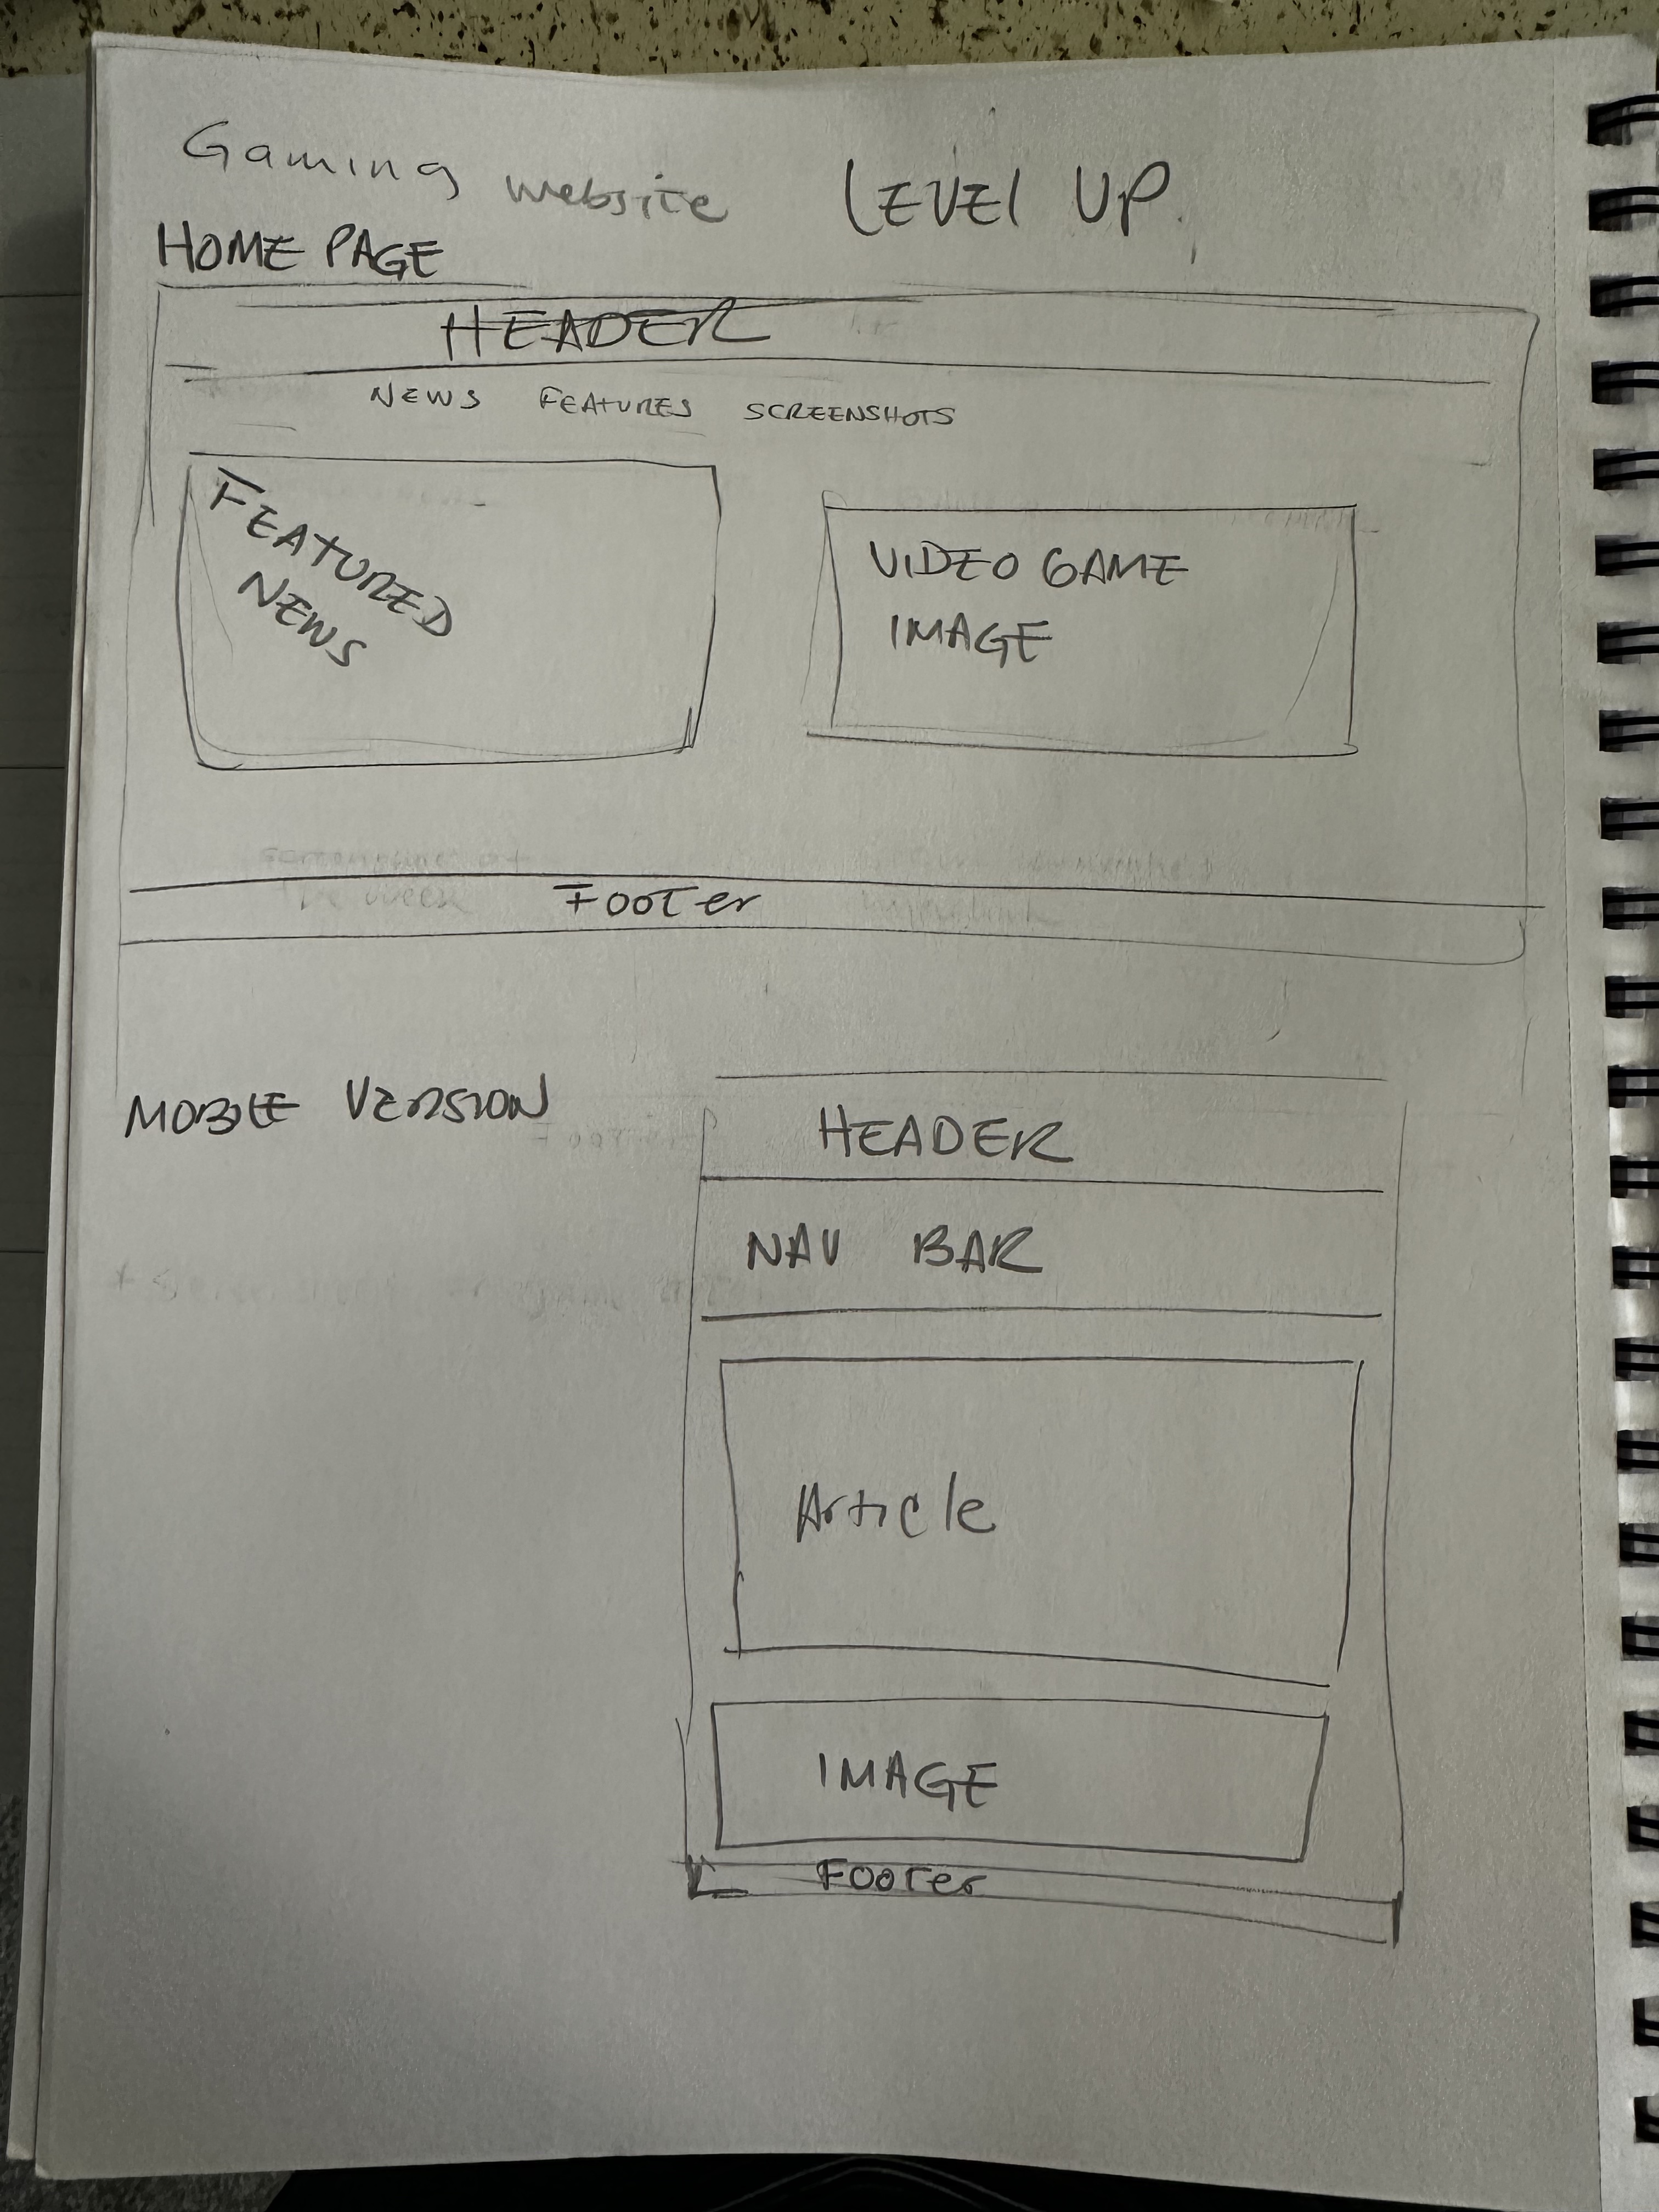 Gaming website LEVEL UP
HOME PAGE
HEADER
NEWS FEATURES SCREENSHOTS
FEATURED
NEWS
VIDEO GAME
IMAGE
FOOTer
MOBILE VERSION
HEADER
NAV BAR
Article
IMAGE
FOOTer